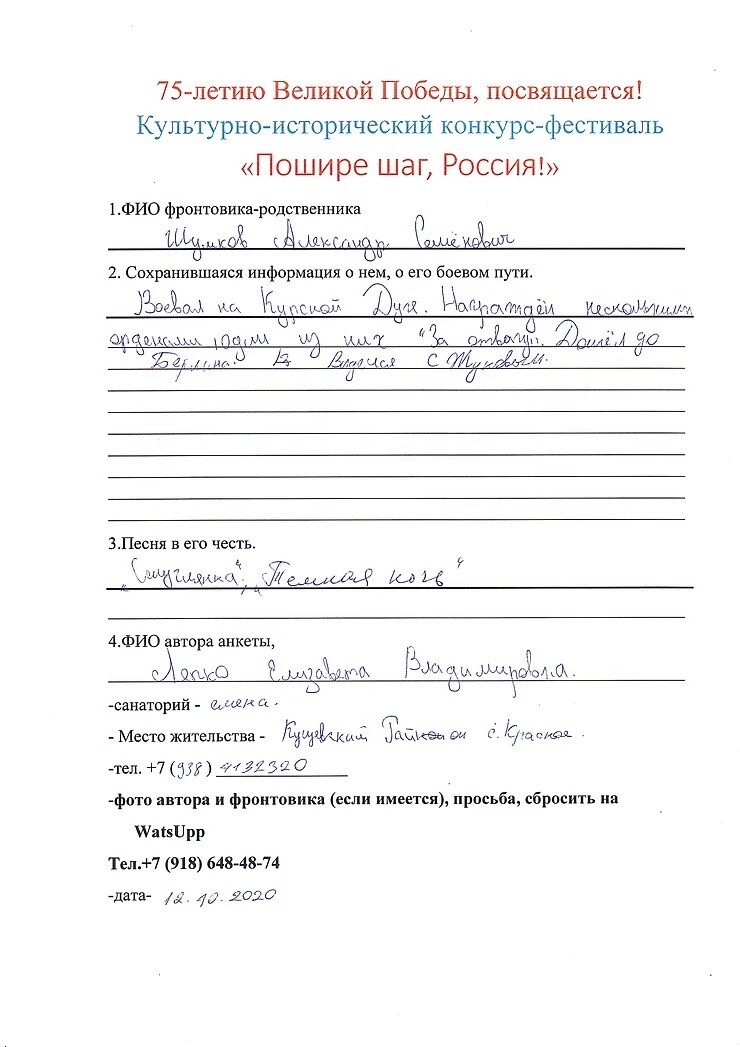 75-летию Великой Победы, посвящается!
Культурно-исторический конкурс-фестиваль
«Пошире шаг, Россия!»
1.ФИО фронтовика-родственника
Шумков Александр Семёнович
2. Сохранившаяся информация о нем, о его боевом пути.
Воевал на Курской Дуге. Награждён несколькими
орденами один из них "За отвагу". Дошёл до
Берлина. Виделся с Жуковым.
3.Песня в его честь.
"Смуглянка", "Темная ночь"
4.ФИО автора анкеты,
Лепко Елизавета Владимировна.
-санаторий - смена.
- Место жительства - Кущевский Район с. Красное.
-тел. +7 (938) 4132320
-фото автора и фронтовика (если имеется), просьба, сбросить на
WatsUpp
Тел.+7 (918) 648-48-74
-дата- 12.10.2020